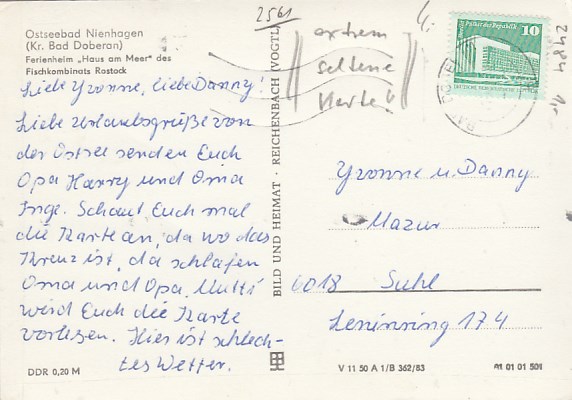 Ostseebad Nienhagen
(Kr. Bad Doberan)
Ferienheim „Haus am Meer" des
Fischkombinats Rostock
Liebe Yvonne, liebe Danny!
Liebe Urlaubsgrüße von
der Ostsee senden Euch
Opa Harry und Oma
Inge. Schaut Euch mal
die Karte an, da wo das
Kreuz ist, da schlafen
Oma und Opa. Mutti
wird Euch die Karte
vorlesen. Hier ist schlech-
tes Wetter.
DDR 0,20 M
BILD UND HEIMAT · REICHENBACH (VOGTL)
2561
extrem
seltene
Karte!
10
Palast der Republik
2484
Yvonne u. Danny
Mazur
6018 Suhl
Leninring 174
V 11 50 A 1/B 362/83
01 01 01 501